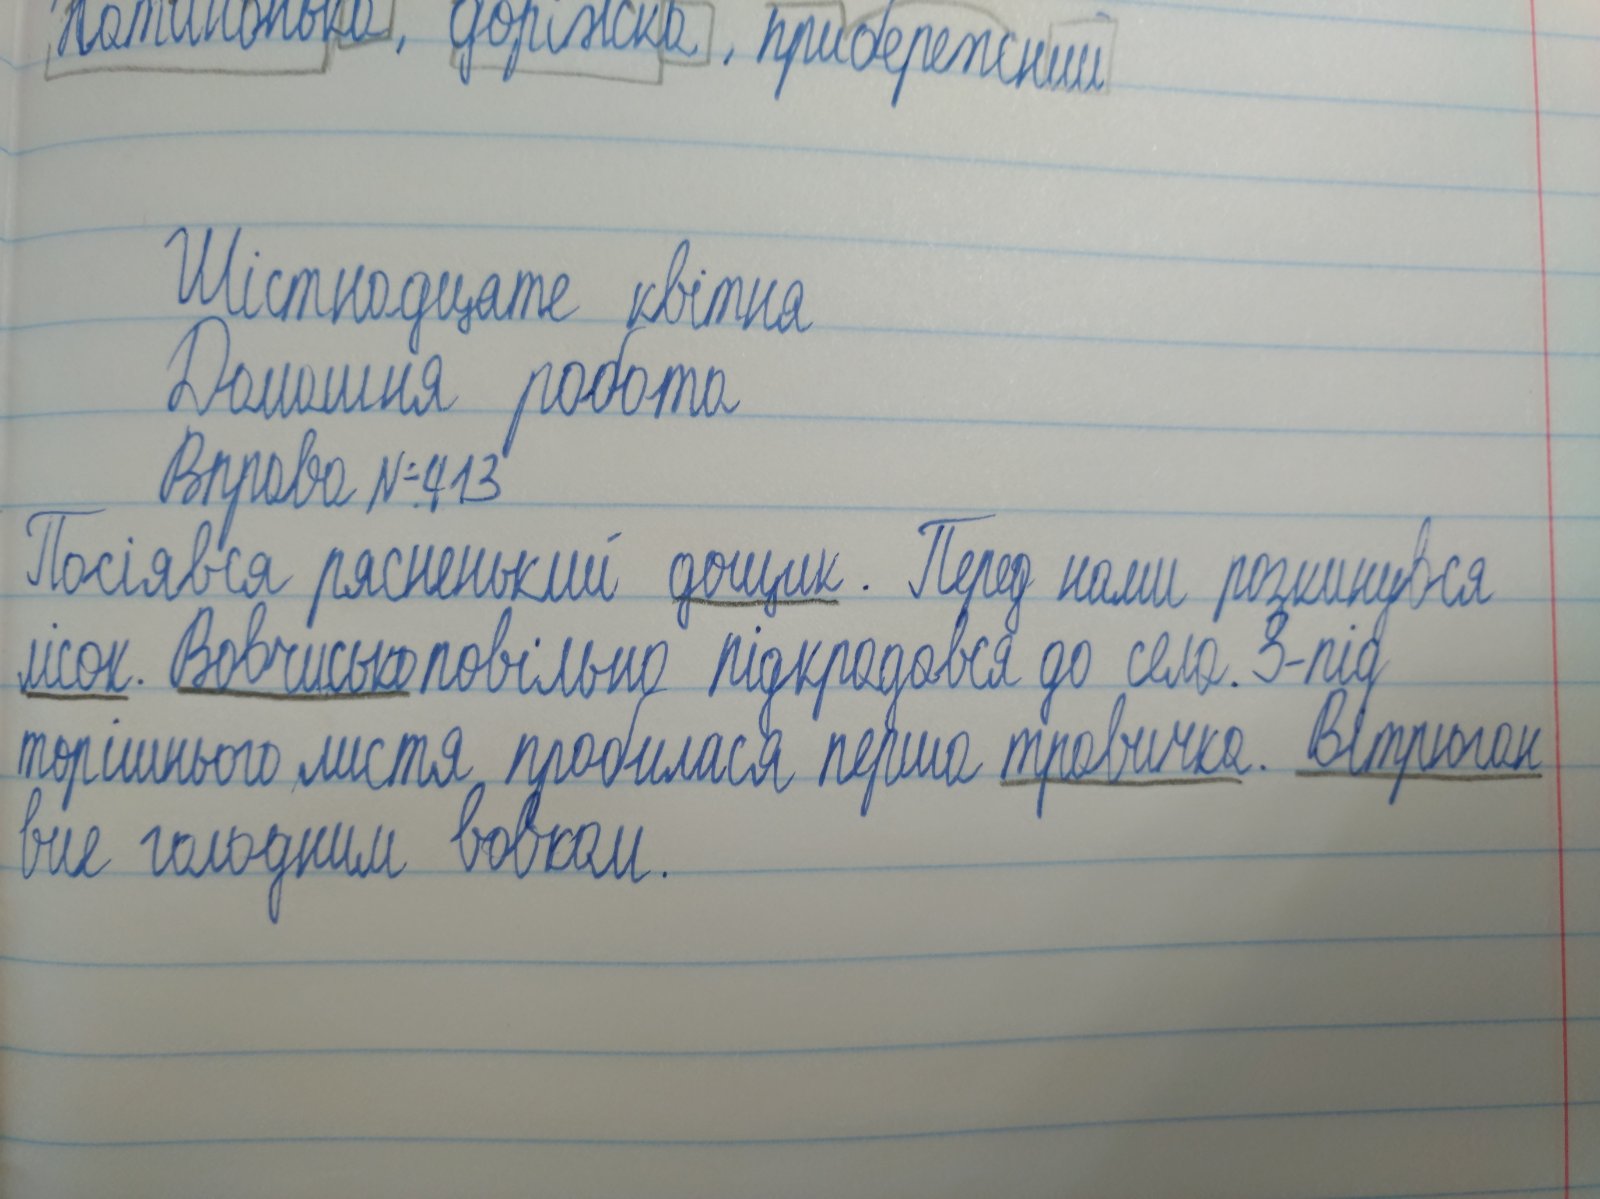 доріжка, прибережний
Шістнадцяте квітня
Домашня робота
Вправа №413
Посіявся рясненький дощик. Перед нами розкинувся
лісок. Вовчисько повільно підкрадався до села. З-під
торішнього листя пробилася перша травичка. Вітрюган
виє голодним вовком.